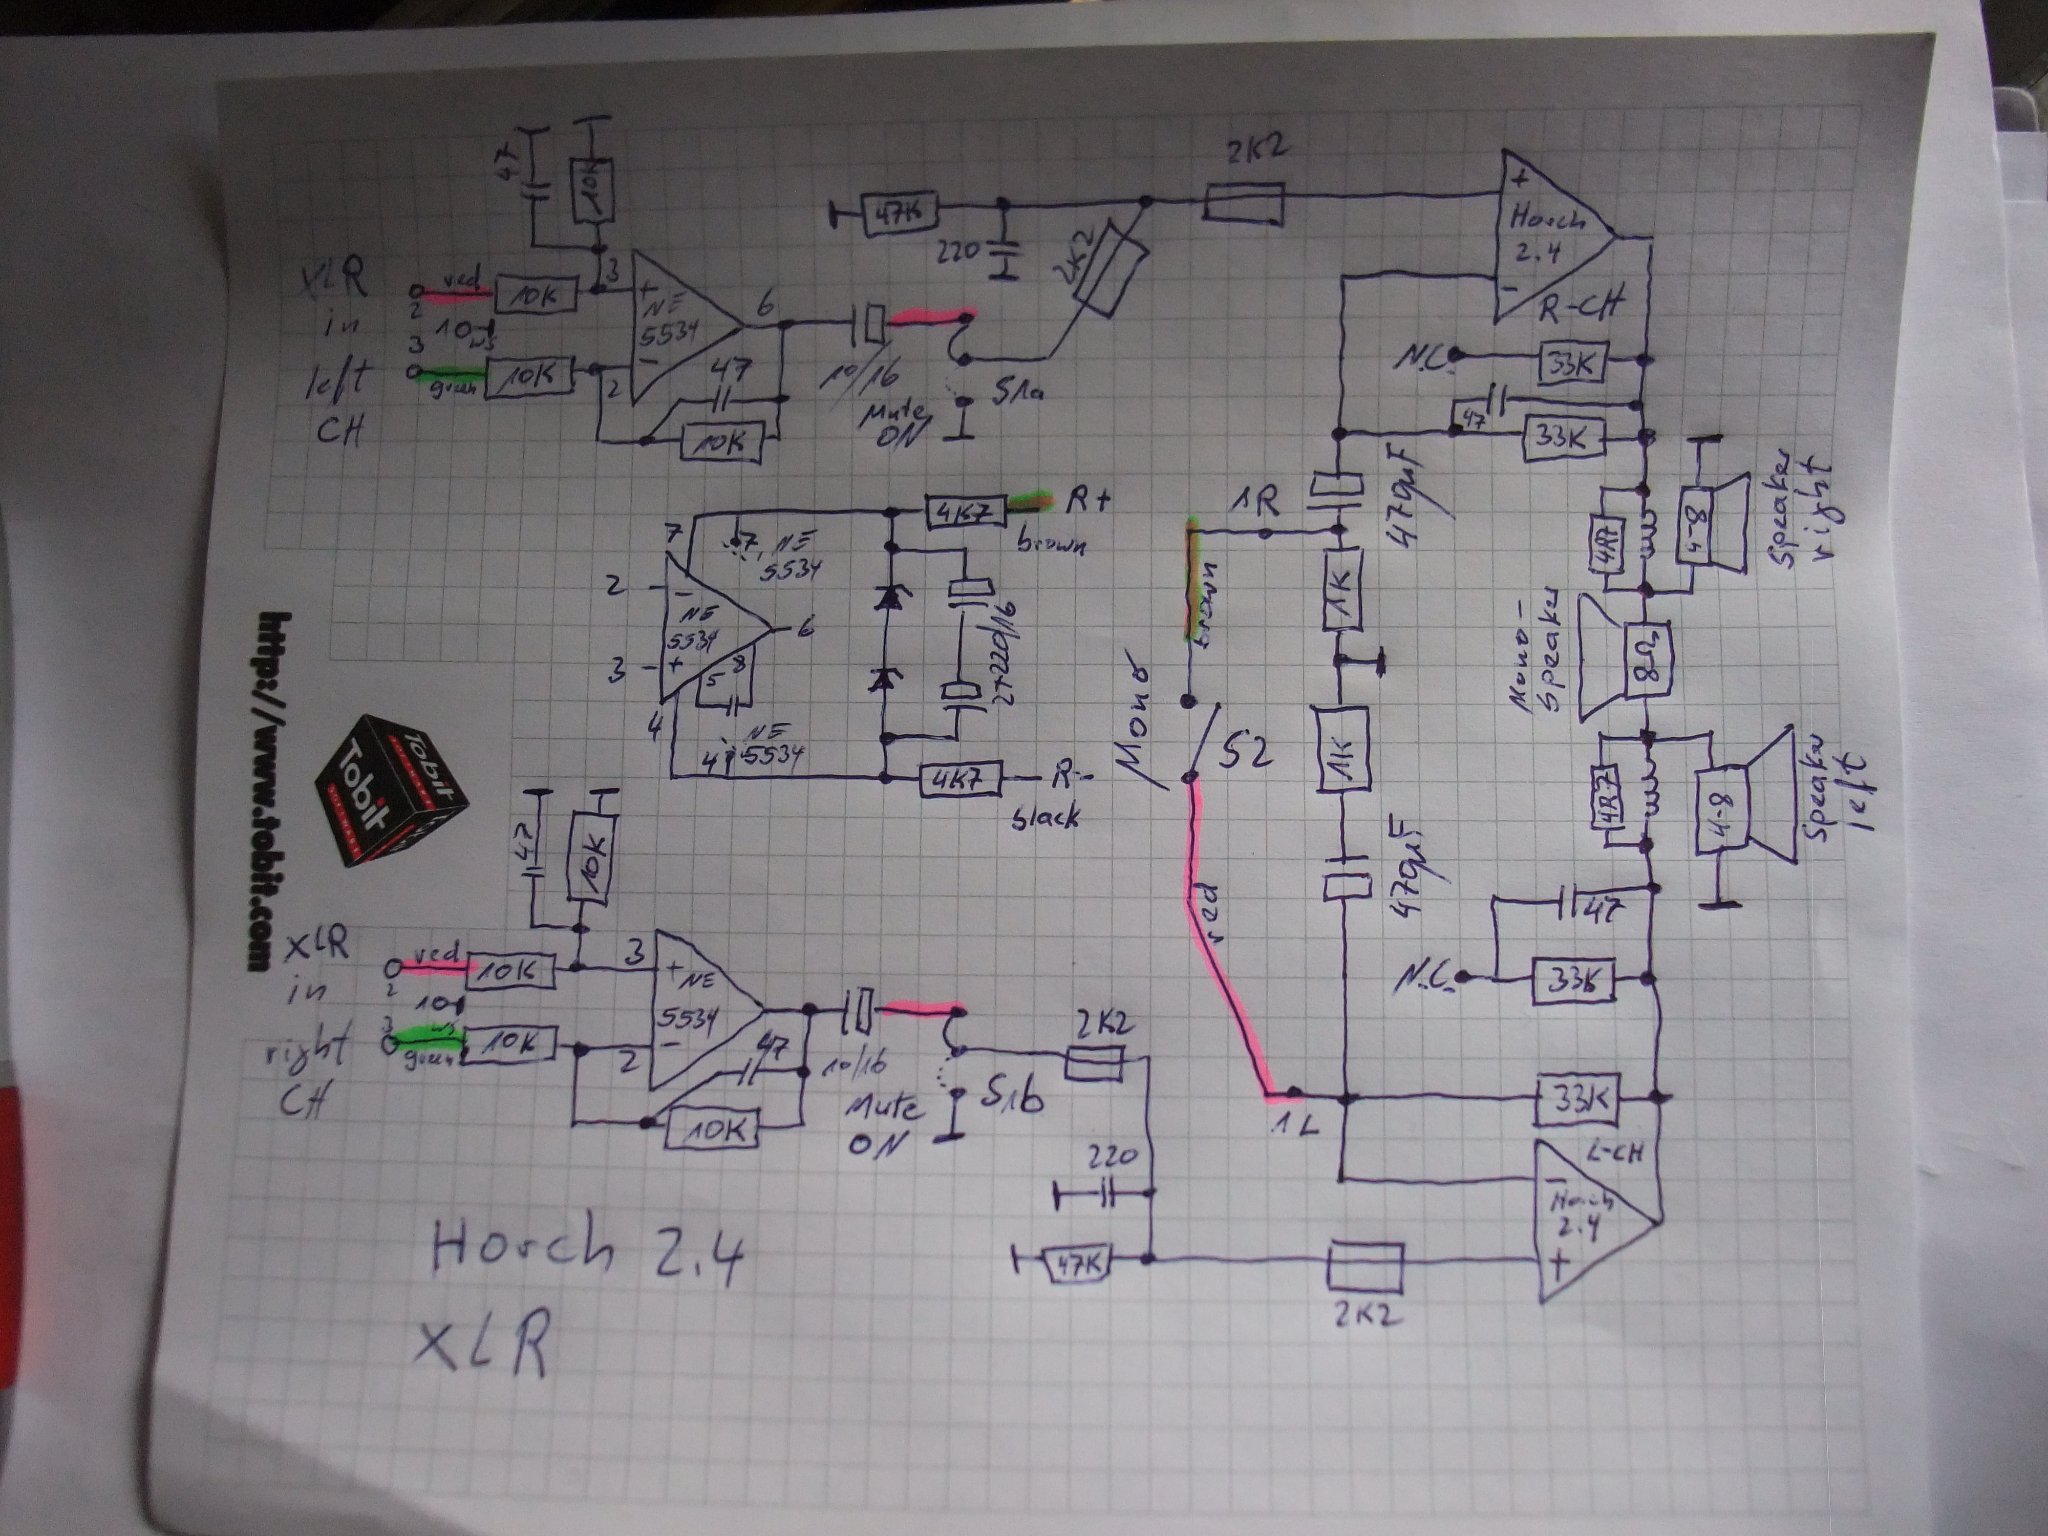 47
10K
XLR
in
left
CH
2
red
10K
3
3
green
10K
2
+
NE
5534
-
6
47
10K
10/16
Mute
ON
S1a
47K
220
2K2
2K2
+
Horch
2.4
-
R-CH
N.C.
33K
47
33K
470µF
1R
1K
brown
Mono
S2
1K
470µF
red
1L
4R7
4-8
Speaker
right
Mono-
Speaker
8Ω
4R7
4-8
Speaker
left
47
N.C.
33K
33K
L-CH
-
Horch
2.4
+
7
7
NE
5534
2
-
NE
5534
+
6
3
5
8
4
4
NE
5534
4K7
R+
brown
2x220/16
4K7
R-
black
http://www.tobit.com
Tobit
SOFTWARE
Tobit
47
10K
XLR
in
right
CH
red
10K
2
3
green
10K
3
2
+
NE
5534
-
47
10K
10/16
Mute
ON
S1b
2K2
220
47K
2K2
Horch 2.4
XLR